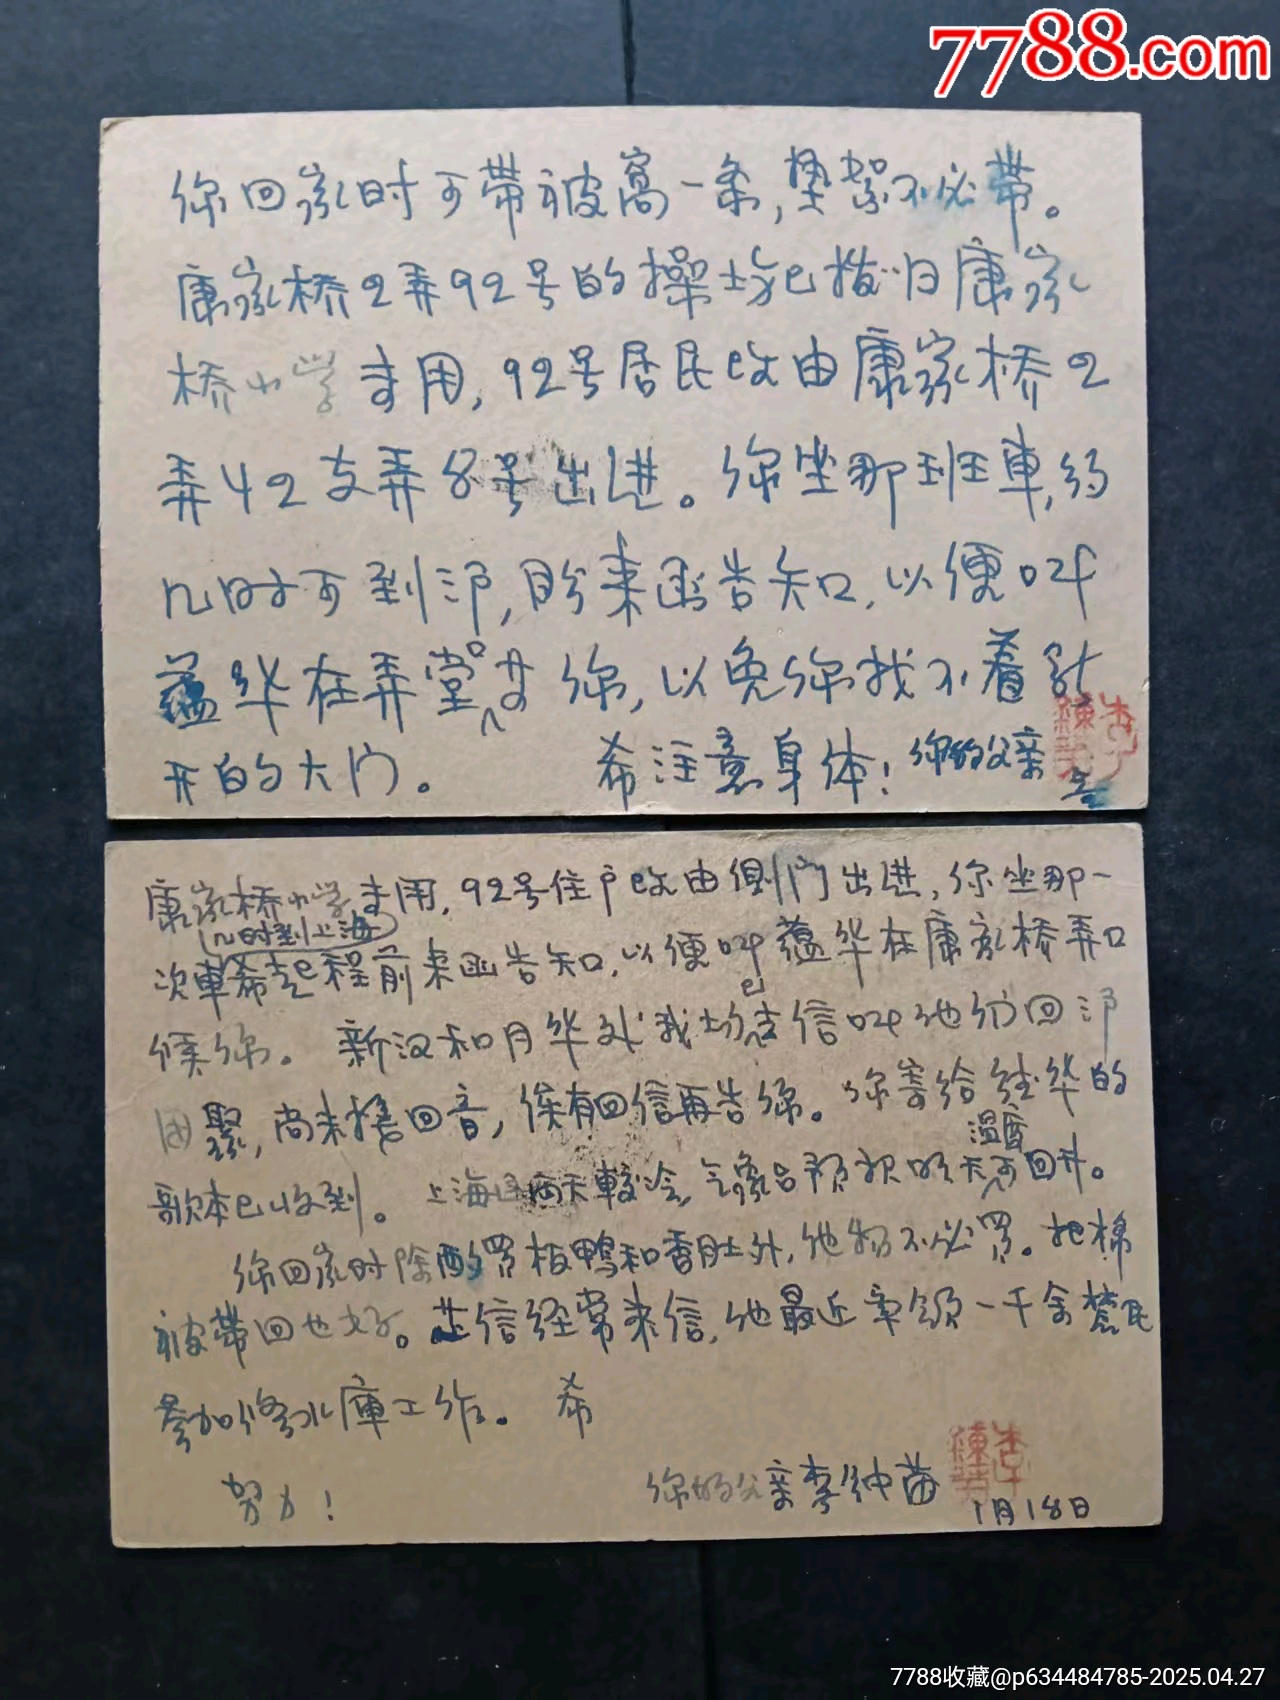 7788.com
你回家时可带被窝一条，垫絮不必带。
康家桥2弄92号的操场已拨归康家
桥小学专用，92号居民改由康家桥2
弄42支弄8号出进。你坐那班車，约
几时可到沪，盼来函告知，以便叫
蕴华在弄堂口等你，以免你找不着新
开的大门。 希注意身体！ 你的父亲
康家桥小学专用，92号住户改由侧门出进，你坐那一
几时到上海
次車希起程前来函告知，以便叫蕴华在康家桥弄口
候你。 新汉和月华处我均已去信叫他们回沪
团聚，尚未接回音，俟有回信再告你。你寄给经华的
歌本已收到。 上海这两天較冷，气象台预报明天温度可回升。
你回家时除酌買板鴨和香肚外，他物不必買。把棉
被带回也好。芷信经常来信，他最近率领一千余農民
参加修水庫工作。 希
努力！ 你的父亲李钟苗
1月18日
7788收藏@p634484785-2025.04.27